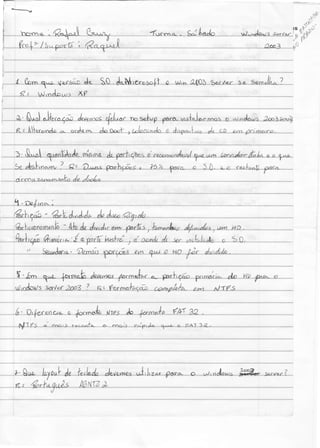 nome: Rafael Cruz Turma: Sábado Windows Server
Profº/Suporte: Raquel 2003
1. Com que versão de SO da Microsoft o Win 2003 Server se Semelha?
R: Windows XP
2. Qual alteração devemos efetuar no setup para instalarmos o windows 2003 server
R: Alterando a ordem do boot, colocando o dispositivo de CD em primeiro.
3. Qual quantidade mínima de partições é recomendável que um servidor tenha e a que
se destinam? R: Duas partições, 25% para o S.O. e o restante para
armazenamento de dados
4. Defina:
Partição - Parte dividida do disco Rígido
Particionamento - Ato de dividir em partes, tamanhos definidos, um HD
Partição Primária: É a parte mestre, é aonde di ser instalado o S.O.
" Secundária - Demais porções em que o HD for dividido.
5. Em que formato devemos formatar a partição primária do HD para o
windows Server 2003? R: Formatação completa em NTFS
6. Diferencie o formato NTFS do formato FAT 32.
NTFS é mais recente e mais rápido que o FAT 32.
7. Que layout de teclado devemos utilizar para o windows 2003 server?
R: Português ABNT2